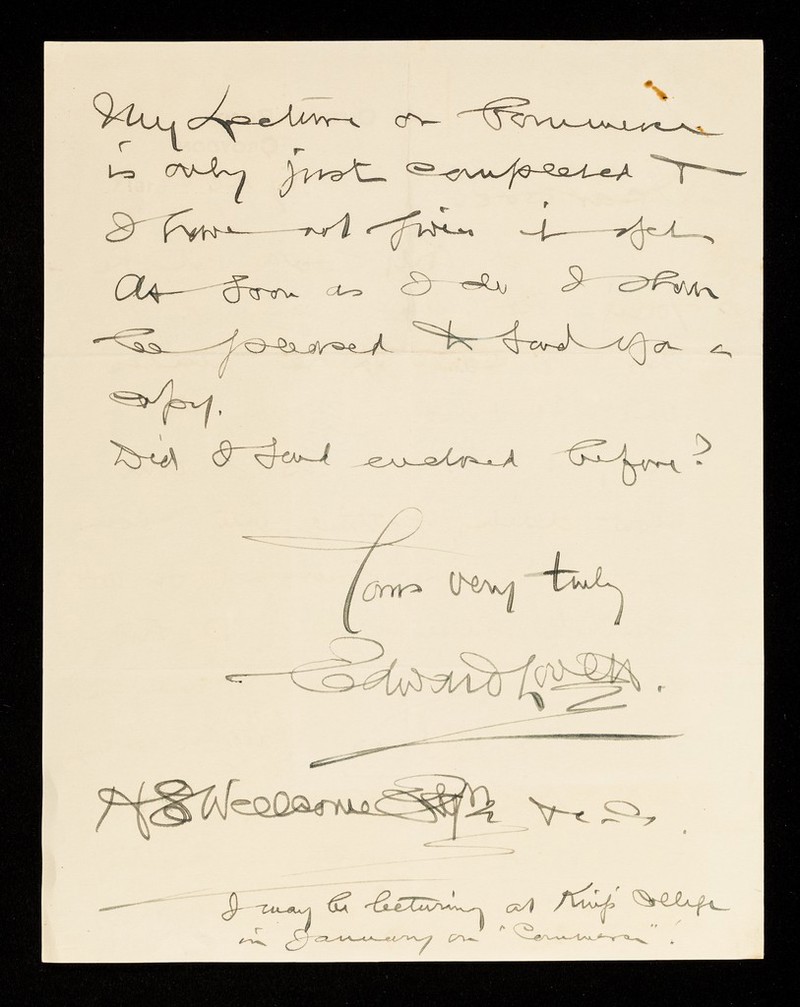 My Lecture on Commerce
is only just completed &
I have not given it yet
As soon as I do I shall
be pleased to send you a
copy.
Did I send enclosed before?
Yours very truly
Edward Lovett.
H S Wellcome Esqr
I may be lecturing at King's College
in January on "Commerce".